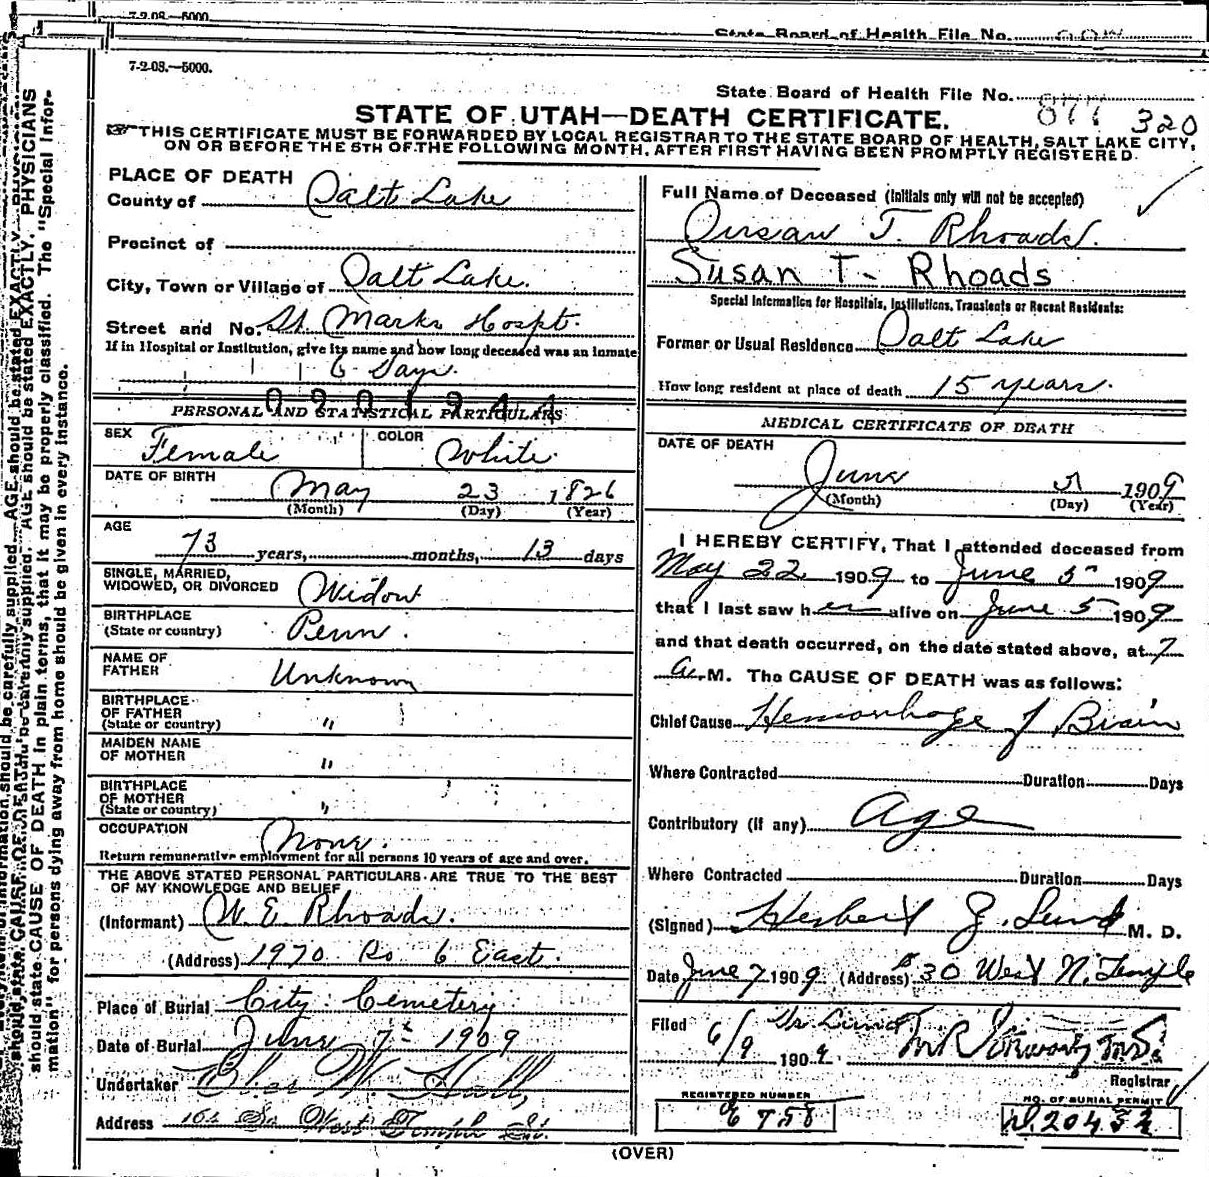 7-2-08.—5000.
State Board of Health File No.
7-2-08.—5000.
State Board of Health File No. 877 320
STATE OF UTAH—DEATH CERTIFICATE.
THIS CERTIFICATE MUST BE FORWARDED BY LOCAL REGISTRAR TO THE STATE BOARD OF HEALTH, SALT LAKE CITY,
ON OR BEFORE THE 5TH OF THE FOLLOWING MONTH, AFTER FIRST HAVING BEEN PROMPTLY REGISTERED.
PLACE OF DEATH
County of Salt Lake
Precinct of
City, Town or Village of Salt Lake.
Street and No. St Marks Hospt.
If in Hospital or Institution, give its name and how long deceased was an inmate
6 Days.
0901944
PERSONAL AND STATISTICAL PARTICULARS
SEX Female COLOR White
DATE OF BIRTH May 23 1826
(Month) (Day) (Year)
AGE 73 years, months, 13 days
SINGLE, MARRIED,
WIDOWED, OR DIVORCED Widow
BIRTHPLACE
(State or country) Penn.
NAME OF
FATHER Unknown
BIRTHPLACE
OF FATHER
(State or country) "
MAIDEN NAME
OF MOTHER "
BIRTHPLACE
OF MOTHER
(State or country) "
OCCUPATION None.
Return remunerative employment for all persons 10 years of age and over.
THE ABOVE STATED PERSONAL PARTICULARS ARE TRUE TO THE BEST
OF MY KNOWLEDGE AND BELIEF
(Informant) W. E. Rhoads.
(Address) 1970 So 6 East.
Place of Burial City Cemetery
Date of Burial June 7th 1909
Undertaker Chas W Hall,
Address 164 So West Temple St.
Full Name of Deceased (Initials only will not be accepted)
Susan T. Rhoads.
Susan T- Rhoads
Special Information for Hospitals, Institutions, Transients or Recent Residents:
Former or Usual Residence Salt Lake
How long resident at place of death 15 years.
MEDICAL CERTIFICATE OF DEATH
DATE OF DEATH
June 5 1909
(Month) (Day) (Year)
I HEREBY CERTIFY, That I attended deceased from
May 22 1909 to June 5" 1909
that I last saw her alive on June 5 1909
and that death occurred, on the date stated above, at 7
a.M. The CAUSE OF DEATH was as follows:
Chief Cause Hemorrhage of Brain
Where Contracted Duration Days
Contributory (if any) Age
Where Contracted Duration Days
(Signed) Herbert J. Lund M. D.
Date June 7 1909 (Address) 30 West N. Temple
Filed 6/9 1909
Registrar
REGISTERED NUMBER
E 758
NO. OF BURIAL PERMIT
(OVER)
AGE should be stated EXACTLY. PHYSICIANS
should state CAUSE OF DEATH in plain terms, that it may be properly classified. The "Special Infor-
mation" for persons dying away from home should be given in every instance.